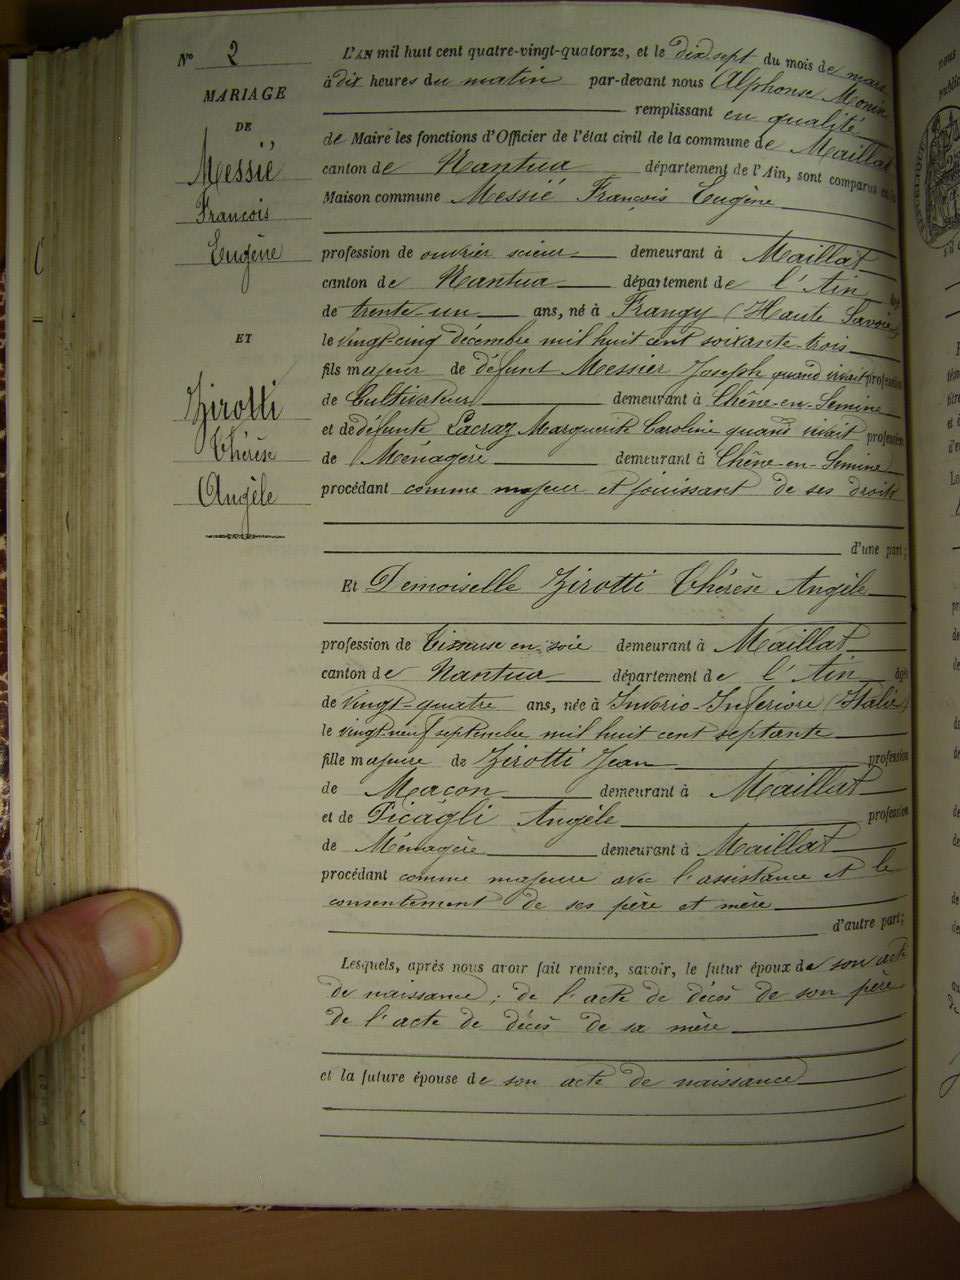 N° 2
MARIAGE
DE
Messié
François
Eugène
ET
Zirotti
Thérèse
Angèle
L'AN mil huit cent quatre-vingt-quatorze, et le dix-sept du mois de mars
à dix heures du matin par-devant nous Alphonse Monin
remplissant en qualité
de Maire les fonctions d'Officier de l'état civil de la commune de Maillat
canton de Nantua département de l'Ain, sont comparus en la
Maison commune Messié François Eugène
profession de ouvrier scieur demeurant à Maillat
canton de Nantua département de l'Ain âgé
de trente-un ans, né à Frangy (Haute Savoie)
le vingt-cinq décembre mil huit cent soixante-trois
fils majeur de défunt Messier Joseph quand vivait profession
de Cultivateur demeurant à Chêne-en-Semine
et de défunte Lacraz Marguerite Caroline quand vivait profession
de Ménagère demeurant à Chêne-en-Semine
procédant comme majeur et jouissant de ses droits
d'une part;
Et Demoiselle Zirotti Thérèse Angèle
profession de Tisseuse en soie demeurant à Maillat
canton de Nantua département de l'Ain âgée
de vingt-quatre ans, née à Invorio-Inferiore (Italie)
le vingt-neuf septembre mil huit cent septante
fille majeure de Zirotti Jean profession
de Maçon demeurant à Maillat
et de Picagli Angèle profession
de Ménagère demeurant à Maillat
procédant comme majeure avec l'assistance et le
consentement de ses père et mère
d'autre part;
Lesquels, après nous avoir fait remise, savoir, le futur époux de son acte
de naissance; de l'acte de décès de son père
de l'acte de décès de sa mère
et la future épouse de son acte de naissance